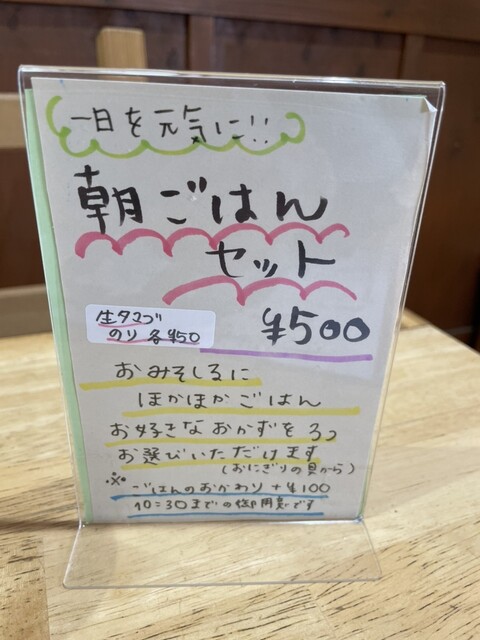 一日を元気に!!
朝ごはん
セット
生タマゴ
のり 各¥50
¥500
おみそしるに
ほかほかごはん
お好きなおかずを3つ
お選びいただけます
(おにぎりの具から)
※ごはんのおかわり+¥100
10:30までの御用意です